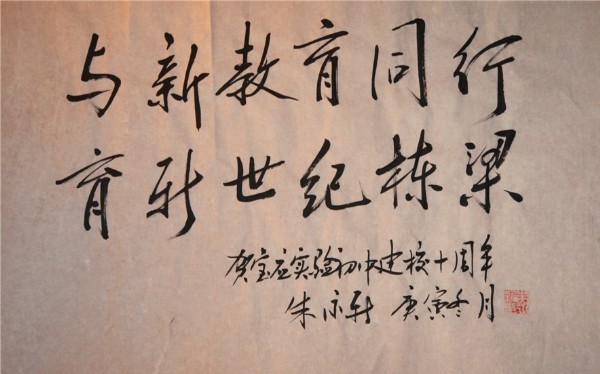 与新教育同行
育新世纪栋梁
贺宝应实验初中建校十周年
朱永新 庚寅冬月